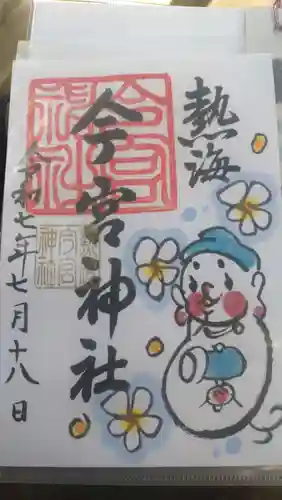 熱海
今宮神社
令和七年七月十八日
今宮神社
熱海今宮神社